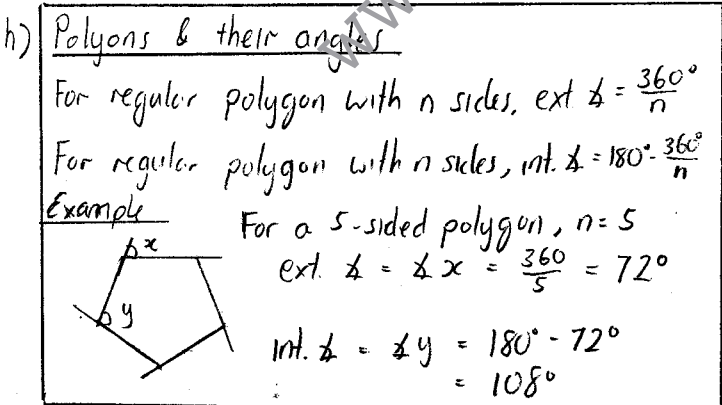 h) Polyons & their angles
For regular polygon with n sides, ext ∡ = 360°/n
For regular polygon with n sides, int. ∡ = 180° - 360°/n
Example
For a 5-sided polygon, n = 5
ext. ∡ = ∡x = 360/5 = 72°
x
y
int. ∡ = ∡y = 180° - 72°
= 108°